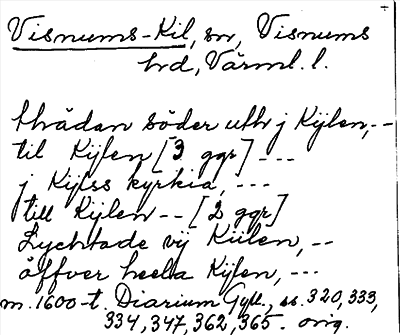 Visnums-Kil, sn, Visnums
hrd, Värml. l.
thrädan söder uth j Kijlen, --
til Kijlen [3 ggr] ---
j Kijlss kyrkia, ---
till Kijlen -- [2 ggr]
Lychtade vij Kiilen, --
åffver heela Kijlen, ---
m. 1600-t. Diarium Gyll., ss. 320, 333,
334, 347, 362, 365. orig.